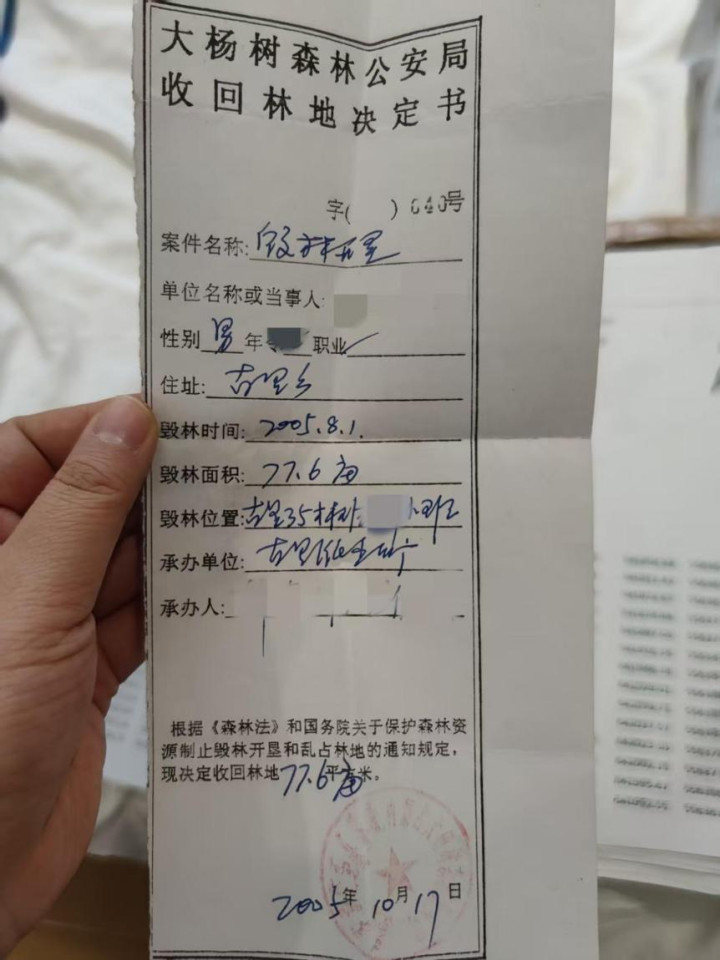 大杨树森林公安局
收回林地决定书
字( ) 040号
案件名称: 毁林开垦
单位名称或当事人:
性别 男 年 职业
住址: 古里乡
毁林时间: 2005.8.1.
毁林面积: 77.6亩
毁林位置: 古里35林班 小班
承办单位: 古里派出所
承办人:
根据《森林法》和国务院关于保护森林资
源制止毁林开垦和乱占林地的通知规定,
现决定收回林地77.6亩 平方米。
2005年10月17日